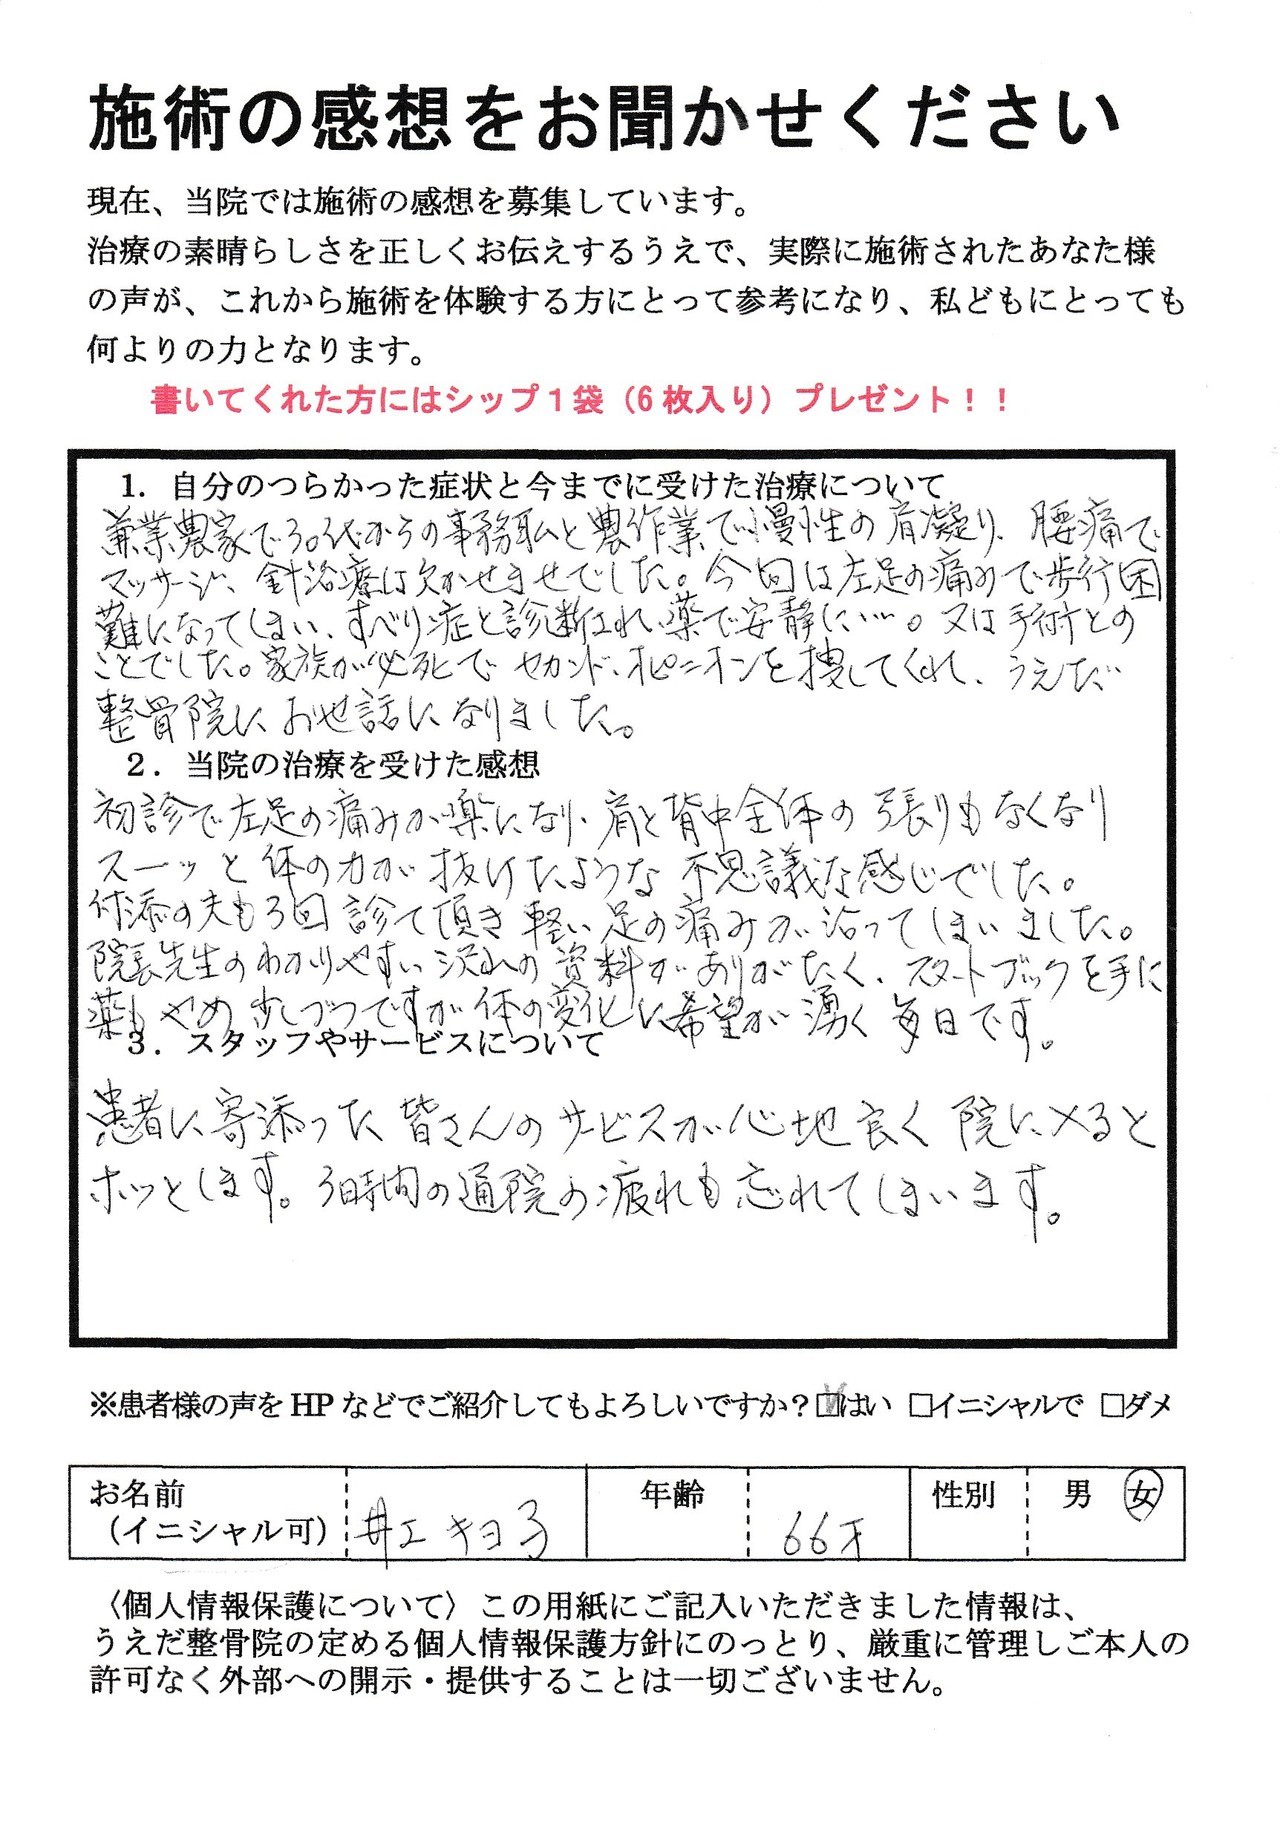 施術の感想をお聞かせください
現在、当院では施術の感想を募集しています。
治療の素晴らしさを正しくお伝えするうえで、実際に施術されたあなた様
の声が、これから施術を体験する方にとって参考になり、私どもにとっても
何よりの力となります。
書いてくれた方にはシップ1袋（6枚入り）プレゼント！！
1. 自分のつらかった症状と今までに受けた治療について
兼業農家で30代からの事務私と農作業で慢性の肩凝り、腰痛で
マッサージ、針治療は欠かせませでした。今回は左足の痛みで歩行困
難になってしまい、すべり症と診断され、薬で安静に…。又は手術との
ことでした。家族が必死でセカンド、オピニオンを捜してくれ、うえだ
整骨院にお世話になりました。
2. 当院の治療を受けた感想
初診で左足の痛みが楽になり、肩と背中全体の張りもなくなり
スーッと体の力が抜けたような不思議な感じでした。
付添の夫も3回診て頂き軽い足の痛みが治ってしまいました。
院長先生のわかりやすい沢山の資料がありがたく、スタートブックを手に
薬もやめ少しづつですが体の変化に希望が湧く毎日です。
3. スタッフやサービスについて
患者に寄添った皆さんのサービスが心地良く院に入ると
ホッとします。3時間の通院の疲れも忘れてしまいます。
※患者様の声をHPなどでご紹介してもよろしいですか？☑はい □イニシャルで □ダメ
お名前 年齢 性別 男 女
（イニシャル可） 井工 キヨ子 66才
〈個人情報保護について〉この用紙にご記入いただきました情報は、
うえだ整骨院の定める個人情報保護方針にのっとり、厳重に管理しご本人の
許可なく外部への開示・提供することは一切ございません。